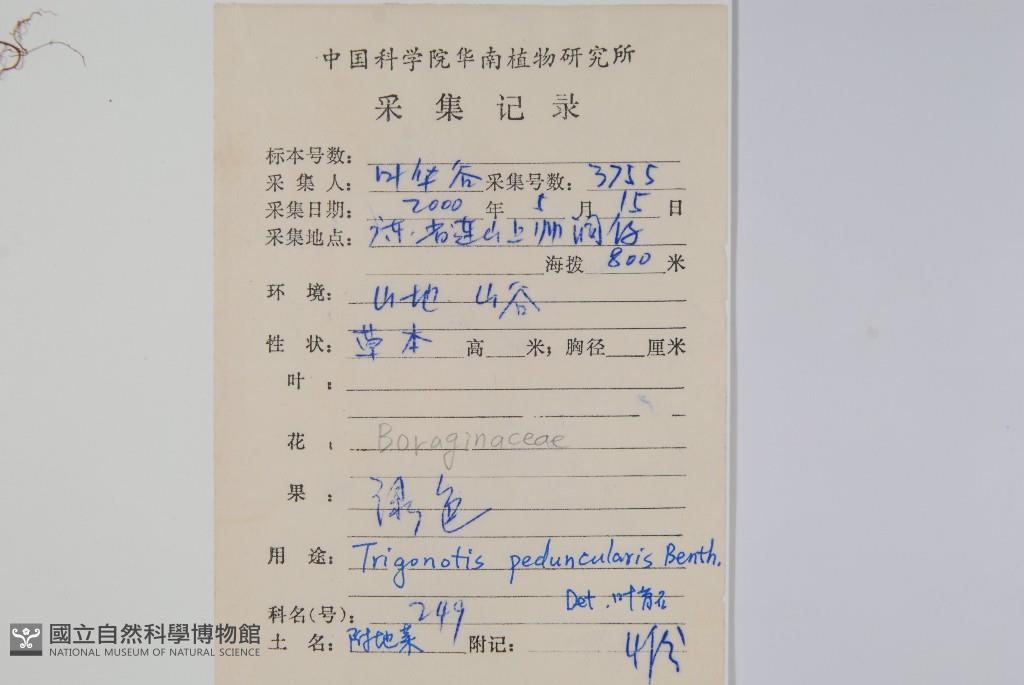 中国科学院华南植物研究所
采集记录
标本号数：
采集人：叶华谷 采集号数：3755
采集日期：2000年5月15日
采集地点：广东省连山上帅洞仔
海拨 800 米
环境：山地 山谷
性状：草本 高 米；胸径 厘米
叶：
花：Boraginaceae
果：绿色
用途：Trigonotis peduncularis Benth.
Det. 叶育石
科名(号)：249
土名：附地菜 附记：4份
國立自然科學博物館
NATIONAL MUSEUM OF NATURAL SCIENCE